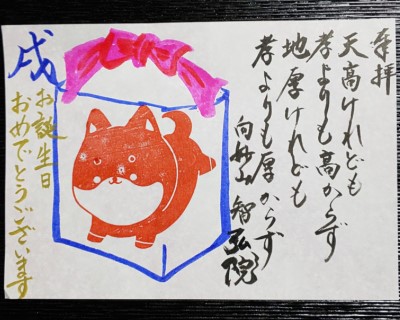 奉拝
天高けれども
孝よりも高からず
地厚けれども
孝よりも厚からず
向妙山 智弘院
戌
お誕生日
おめでとうございます